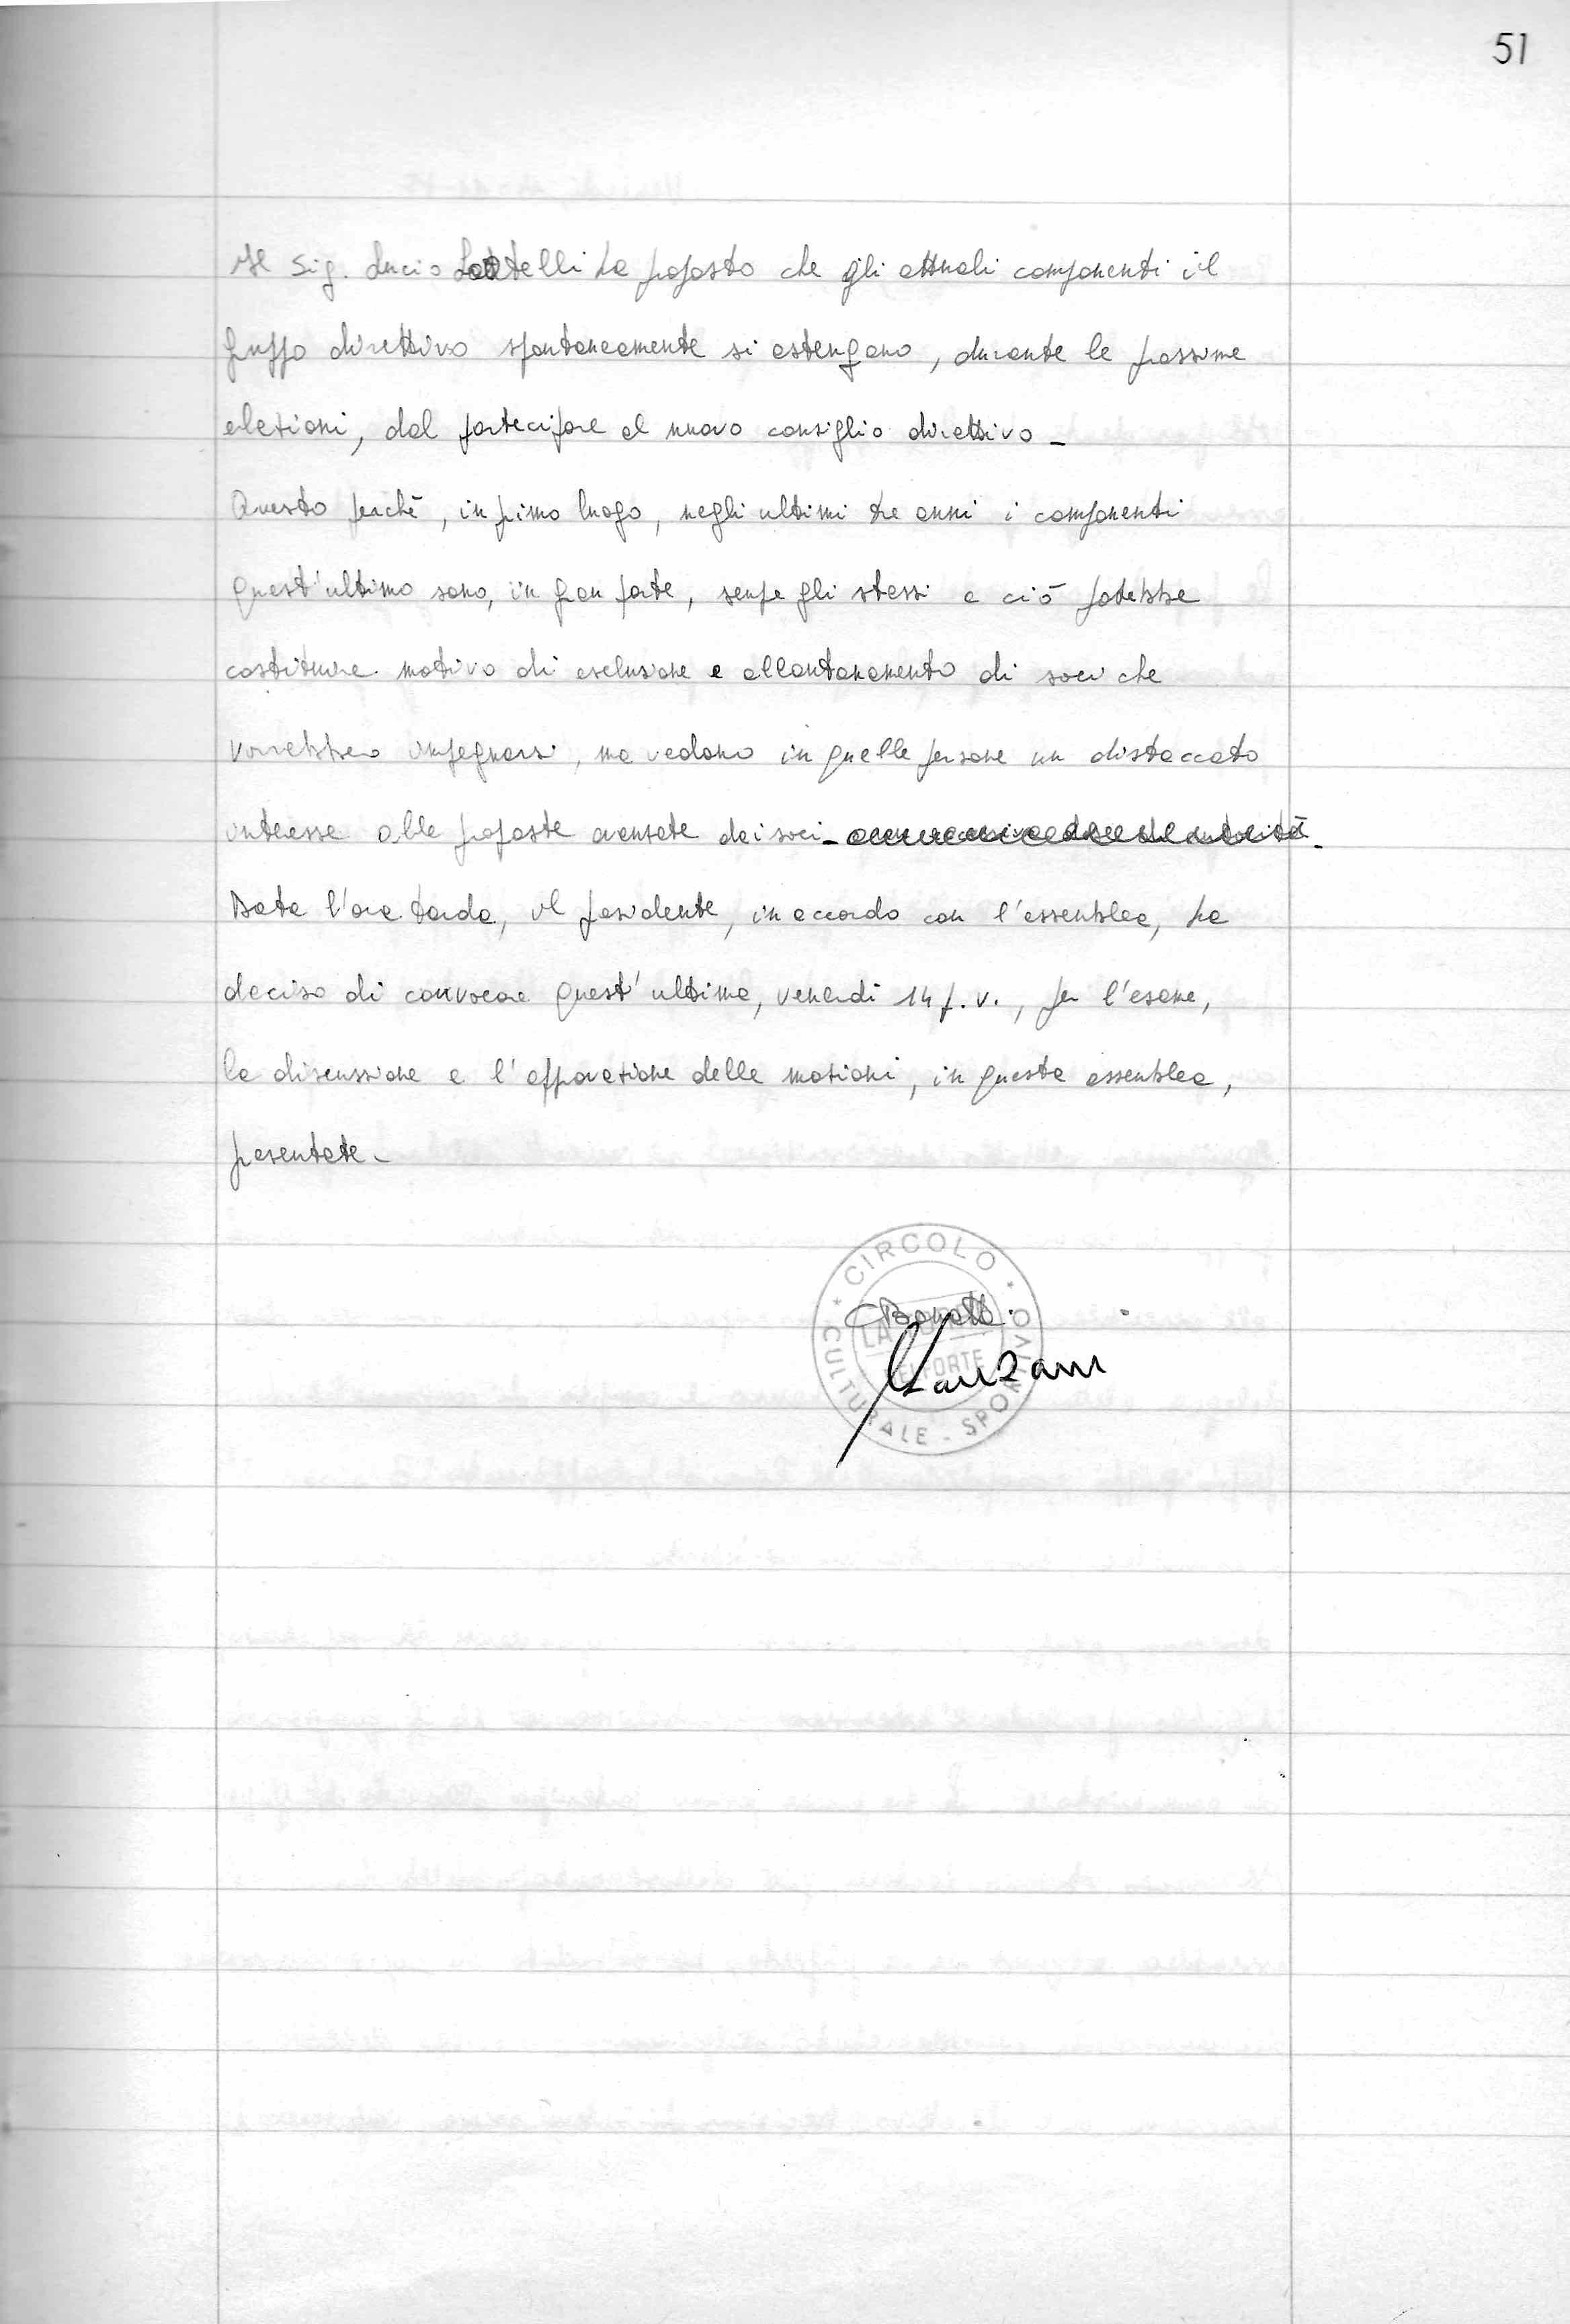 51
Il Sig. Lucio Locatelli ha proposto che gli attuali componenti il
gruppo direttivo spontaneamente si astengano, durante le prossime
elezioni, dal partecipare al nuovo consiglio direttivo -
Questo perchè, in primo luogo, negli ultimi tre anni i componenti
quest'ultimo sono, in gran parte, sempre gli stessi e ciò potrebbe
costituire motivo di esclusione e allontanamento di soci che
vorrebbero impegnarsi, ma vedono in quelle persone un distaccato
interesse alle proposte avanzate dai soci -
Data l'ora tarda, il presidente, in accordo con l'assemblea, ha
deciso di convocare quest'ultima, venerdì 14 p.v., per l'esame,
la discussione e l'approvazione delle mozioni, in questa assemblea,
presentate -
* CIRCOLO *
CULTURALE - SPORTIVO